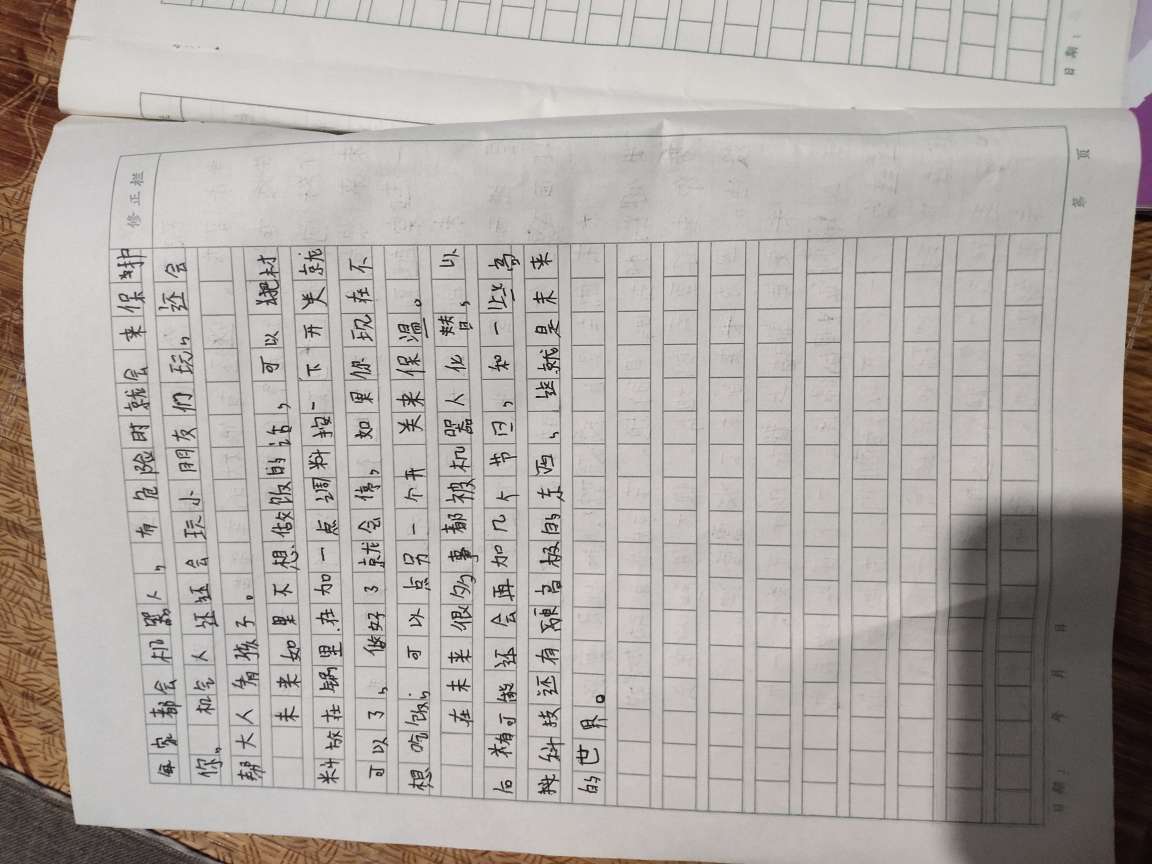 修正栏
每家都会机器人，有危险时就会来保护
你，机人还还会玩小朋友们玩，还会
帮大人看孩子。
未来如果不想做饭的话，可以把材
料放在锅里在加一点调料按一下开关就
可以了，做好了就会停，如果你现在不
想吃饭，可以点另一个开关来保温。
在未来很多事都被机器人化替，以
后有可能还会再加几个节日，和一些高
科技还有高极的东西，这就是未来
的世界。
第 页
日期： 年 月 日
日期：